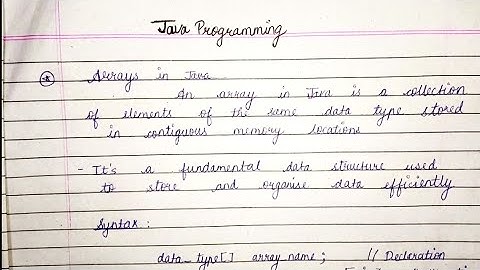 Java Programming
Arrays in Java
An array in Java is a collection
of elements of the same data type stored
in contiguous memory locations
- It's a fundamental data structure used
to store and organise data efficiently
Syntax :
data_type[] array_name; // Declaration